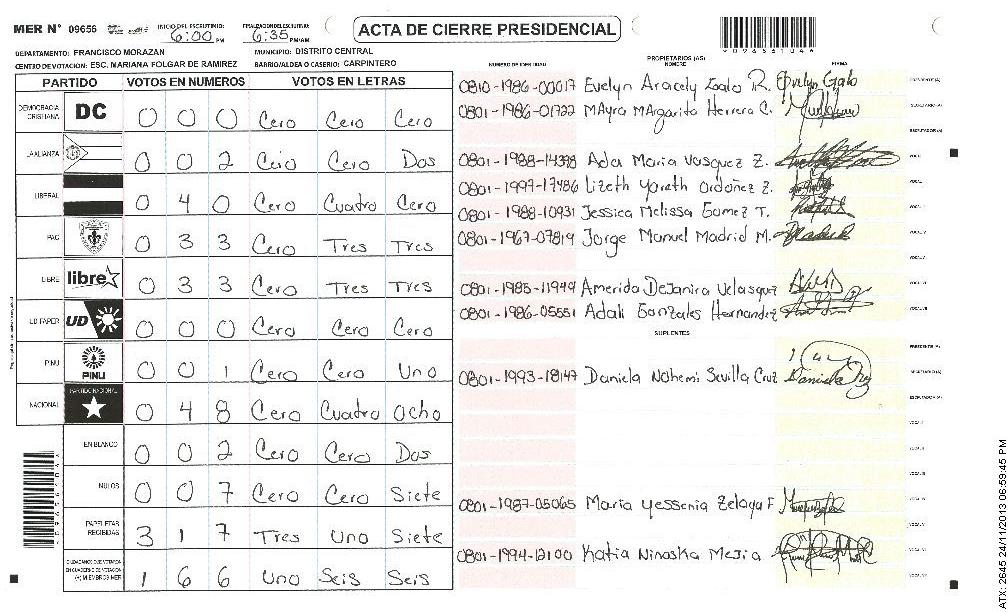 MER Nº 09656 INICIO DEL ESCRUTINIO: 6:00 PM FINALIZACION ESCRUTINIO: 6:35 PM/AM
ACTA DE CIERRE PRESIDENCIAL
DEPARTAMENTO: FRANCISCO MORAZAN MUNICIPIO: DISTRITO CENTRAL
CENTRO DE VOTACION: ESC. MARIANA FOLGAR DE RAMIREZ BARRIO/ALDEA O CASERIO: CARPINTERO
PARTIDO VOTOS EN NUMEROS VOTOS EN LETRAS
DEMOCRACIA CRISTIANA DC 0 0 0 Cero Cero Cero
LA ALIANZA 0 0 2 Cero Cero Dos
LIBERAL 0 4 0 Cero Cuatro Cero
PAC 0 3 3 Cero Tres Tres
LIBRE libre 0 3 3 Cero Tres Tres
UD FAPER UD 0 0 0 Cero Cero Cero
PINU PINU 0 0 1 Cero Cero Uno
NACIONAL PARTIDO NACIONAL 0 4 8 Cero Cuatro Ocho
EN BLANCO 0 0 2 Cero Cero Dos
NULOS 0 0 7 Cero Cero Siete
PAPELETAS RECIBIDAS 3 1 7 Tres Uno Siete
CIUDADANOS QUE VOTARON EN CUADERNO DE VOTACION (+) MIEMBROS MER 1 6 6 Uno Seis Seis
PROPIETARIOS (AS)
NUMERO DE IDENTIDAD NOMBRE FIRMA
0810-1986-00017 Evelyn Aracely Galo R. Evelyn Galo PRESIDENTE (A)
0801-1986-01722 Mayra Margarita Herrera C. SECRETARIO (A)
ESCRUTADOR (A)
0801-1988-14378 Ada Maria Vasquez Z. VOCAL I
0801-1997-17486 Lizeth Yoreth Ordoñez Z.
0801-1988-10931 Jessica Melissa Gomez T.
0801-1967-07819 Jorge Manuel Madrid M.
0801-1985-11949 Amerida DeJanira Velasquz
0801-1986-05551 Adali Gonzales Hernandez
SUPLENTES
PRESIDENTE (A)
0801-1993-18147 Daniela Nohemi Sevilla Cruz SECRETARIO (A)
ESCRUTADOR (A)
0801-1987-05065 Maria Yessenia Zelaya F
0801-1994-12100 Katia Ninoska Mejia
ATX: 2645 24/11/2013 06:59:45 PM